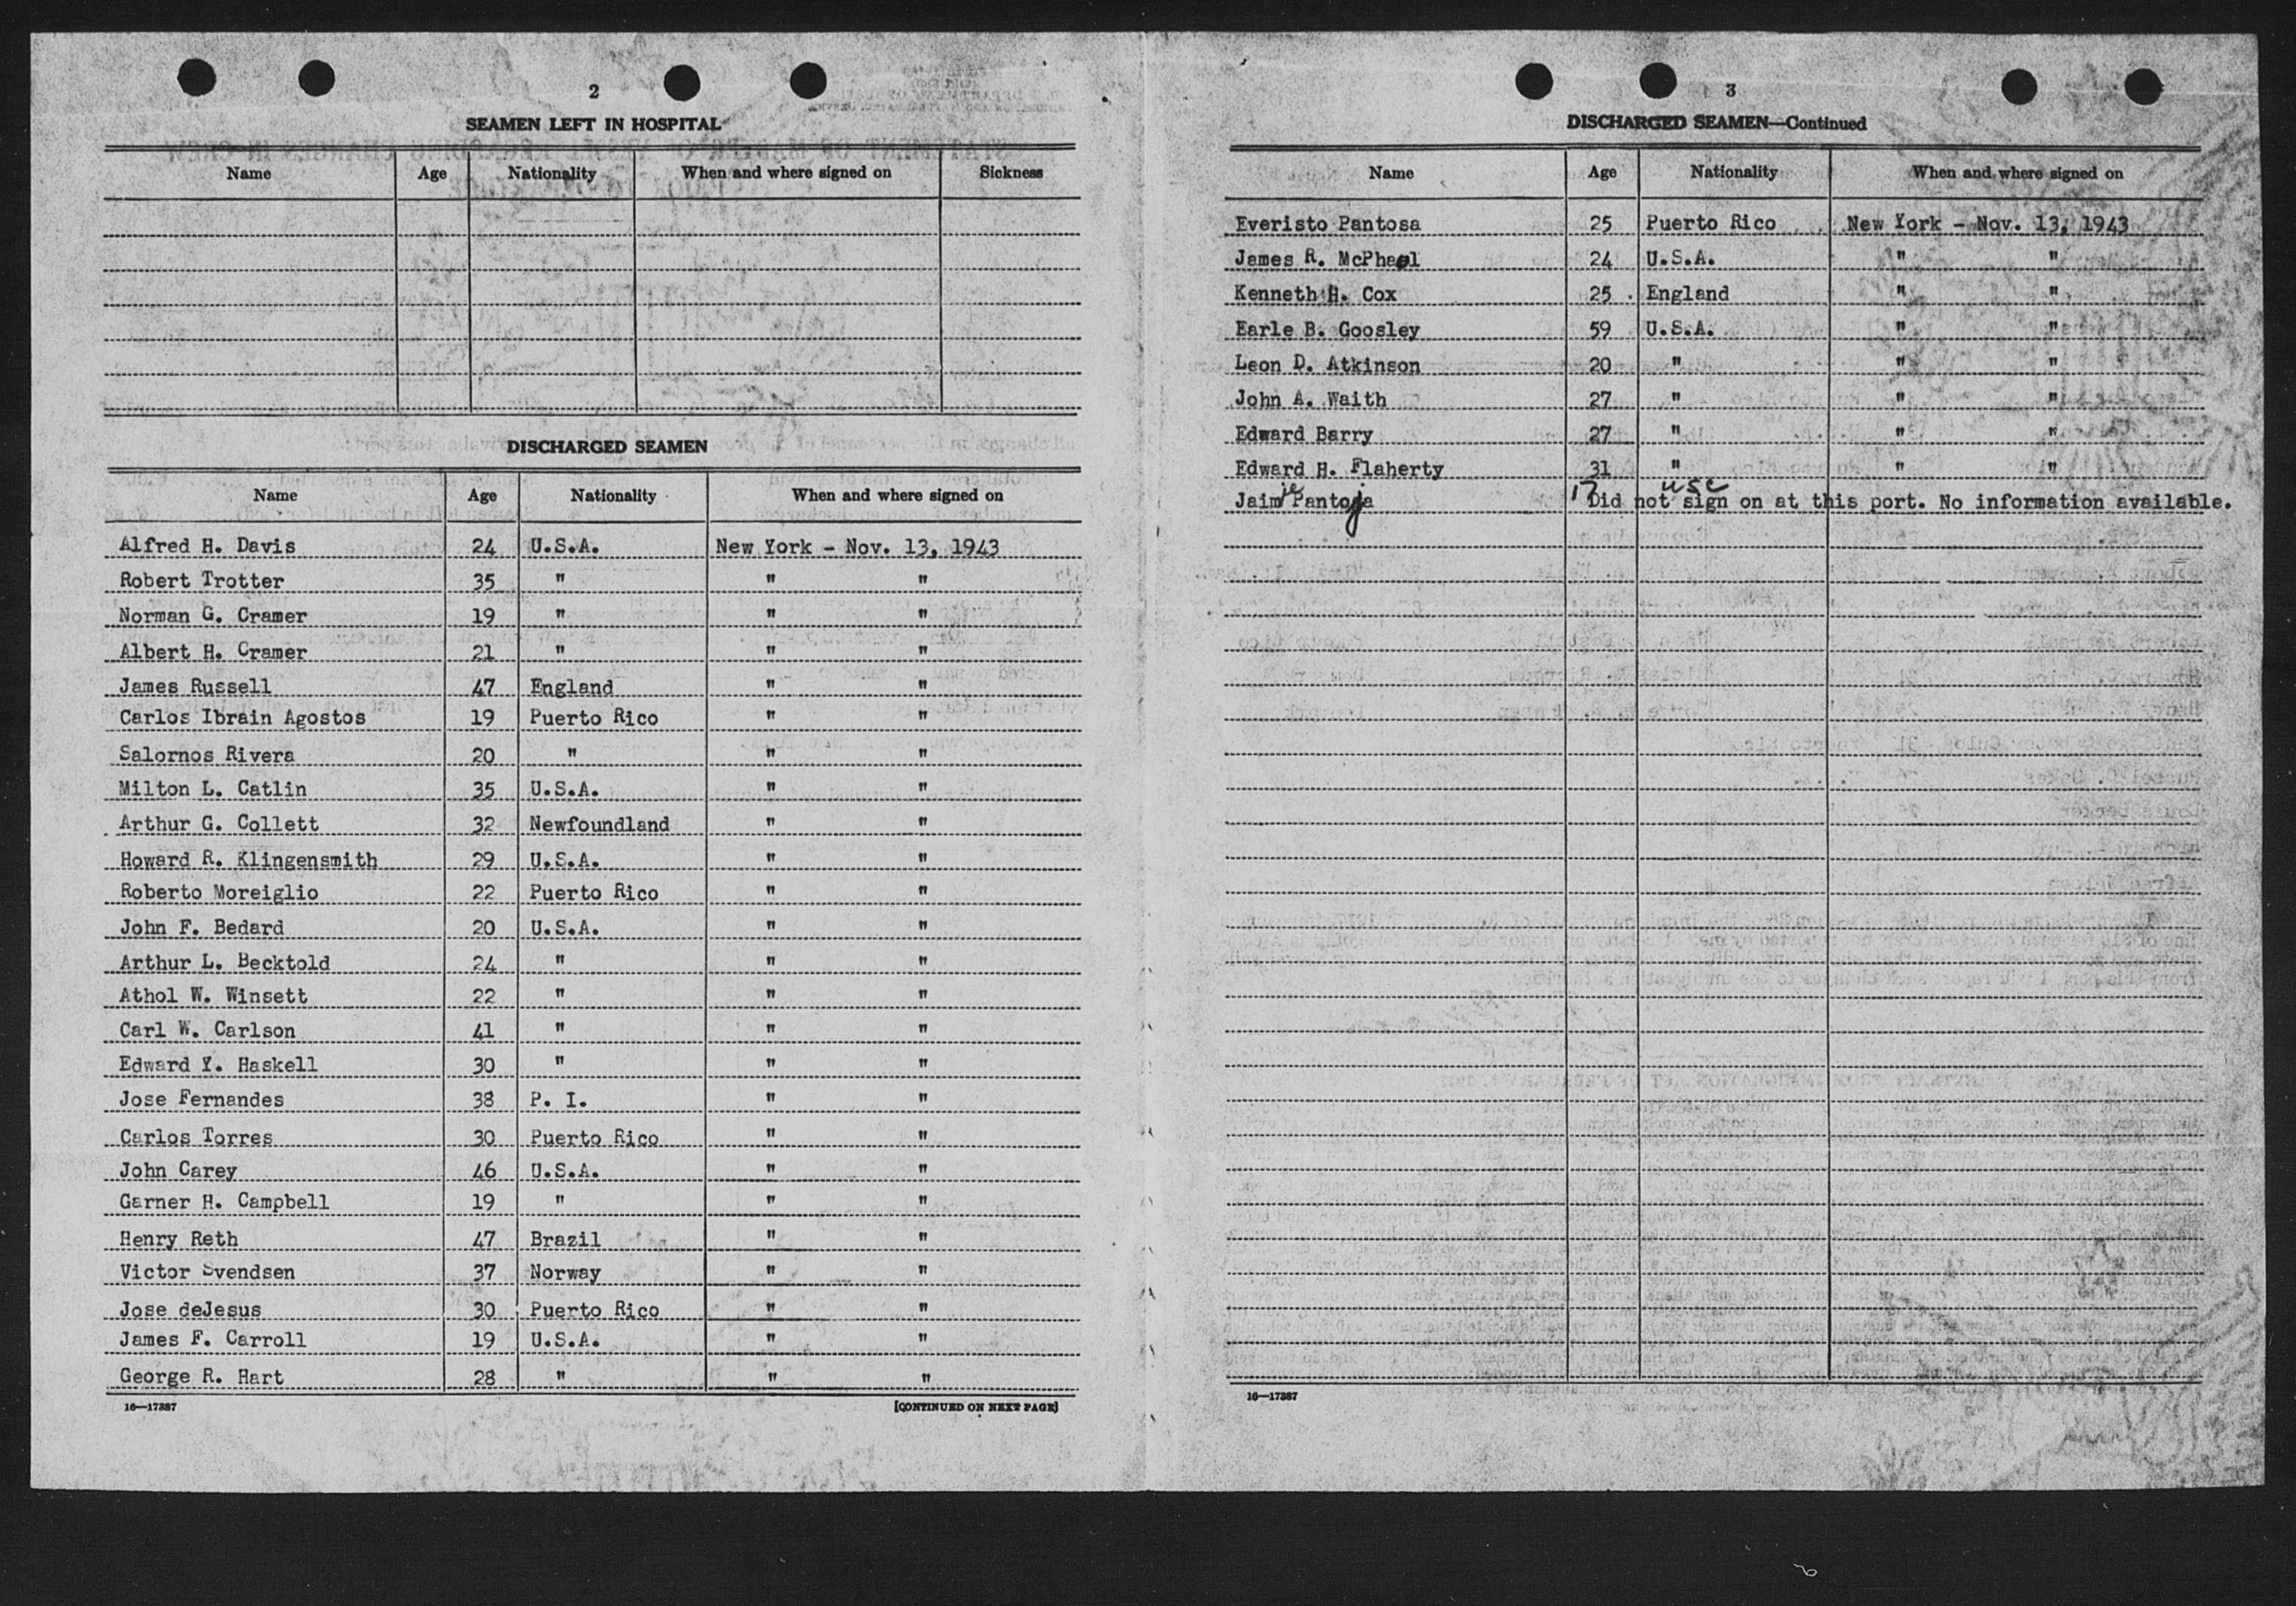 2
SEAMEN LEFT IN HOSPITAL
Name Age Nationality When and where signed on Sickness
DISCHARGED SEAMEN
Name Age Nationality When and where signed on
Alfred H. Davis 24 U.S.A. New York - Nov. 13, 1943
Robert Trotter 35 " " "
Norman G. Cramer 19 " " "
Albert H. Cramer 21 " " "
James Russell 47 England " "
Carlos Ibrain Agostos 19 Puerto Rico " "
Salornos Rivera 20 " " "
Milton L. Catlin 35 U.S.A. " "
Arthur G. Collett 32 Newfoundland " "
Howard R. Klingensmith 29 U.S.A. " "
Roberto Moreiglio 22 Puerto Rico " "
John F. Bedard 20 U.S.A. " "
Arthur L. Becktold 24 " " "
Athol W. Winsett 22 " " "
Carl W. Carlson 41 " " "
Edward Y. Haskell 30 " " "
Jose Fernandes 38 P. I. " "
Carlos Torres 30 Puerto Rico " "
John Carey 46 U.S.A. " "
Garner H. Campbell 19 " " "
Henry Reth 47 Brazil " "
Victor Svendsen 37 Norway " "
Jose deJesus 30 Puerto Rico " "
James F. Carroll 19 U.S.A. " "
George R. Hart 28 " " "
16—17387 [CONTINUED ON NEXT PAGE]
3
DISCHARGED SEAMEN—Continued
Name Age Nationality When and where signed on
Everisto Pantosa 25 Puerto Rico New York - Nov. 13, 1943
James R. McPhael 24 U.S.A. " "
Kenneth H. Cox 25 England " "
Earle B. Goosley 59 U.S.A. " "
Leon D. Atkinson 20 " " "
John A. Waith 27 " " "
Edward Barry 27 " " "
Edward H. Flaherty 31 " " "
Jaimie Pantoja 17 usc Did not sign on at this port. No information available.
16—17387